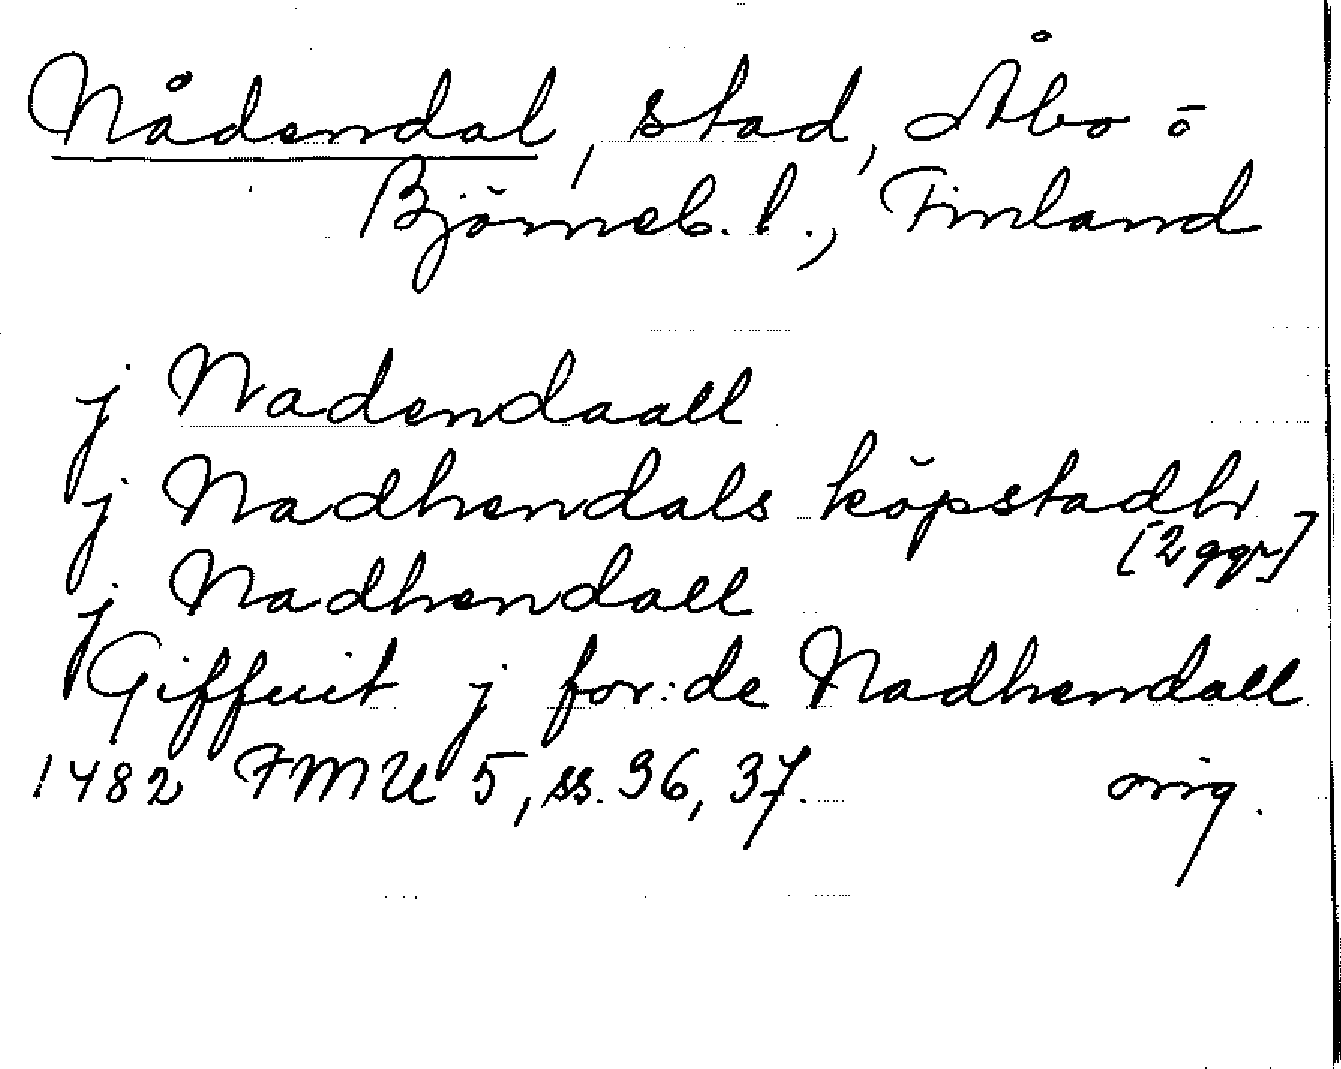 Nådendal, stad, Åbo o
Björneb. l., Finland
j Nadendaall
j Nadhendals köpstadh
[2 ggr]
j Nadhendall
Giffuit j for:de Nadhendall
1482 FMU 5, ss. 36, 37. orig.